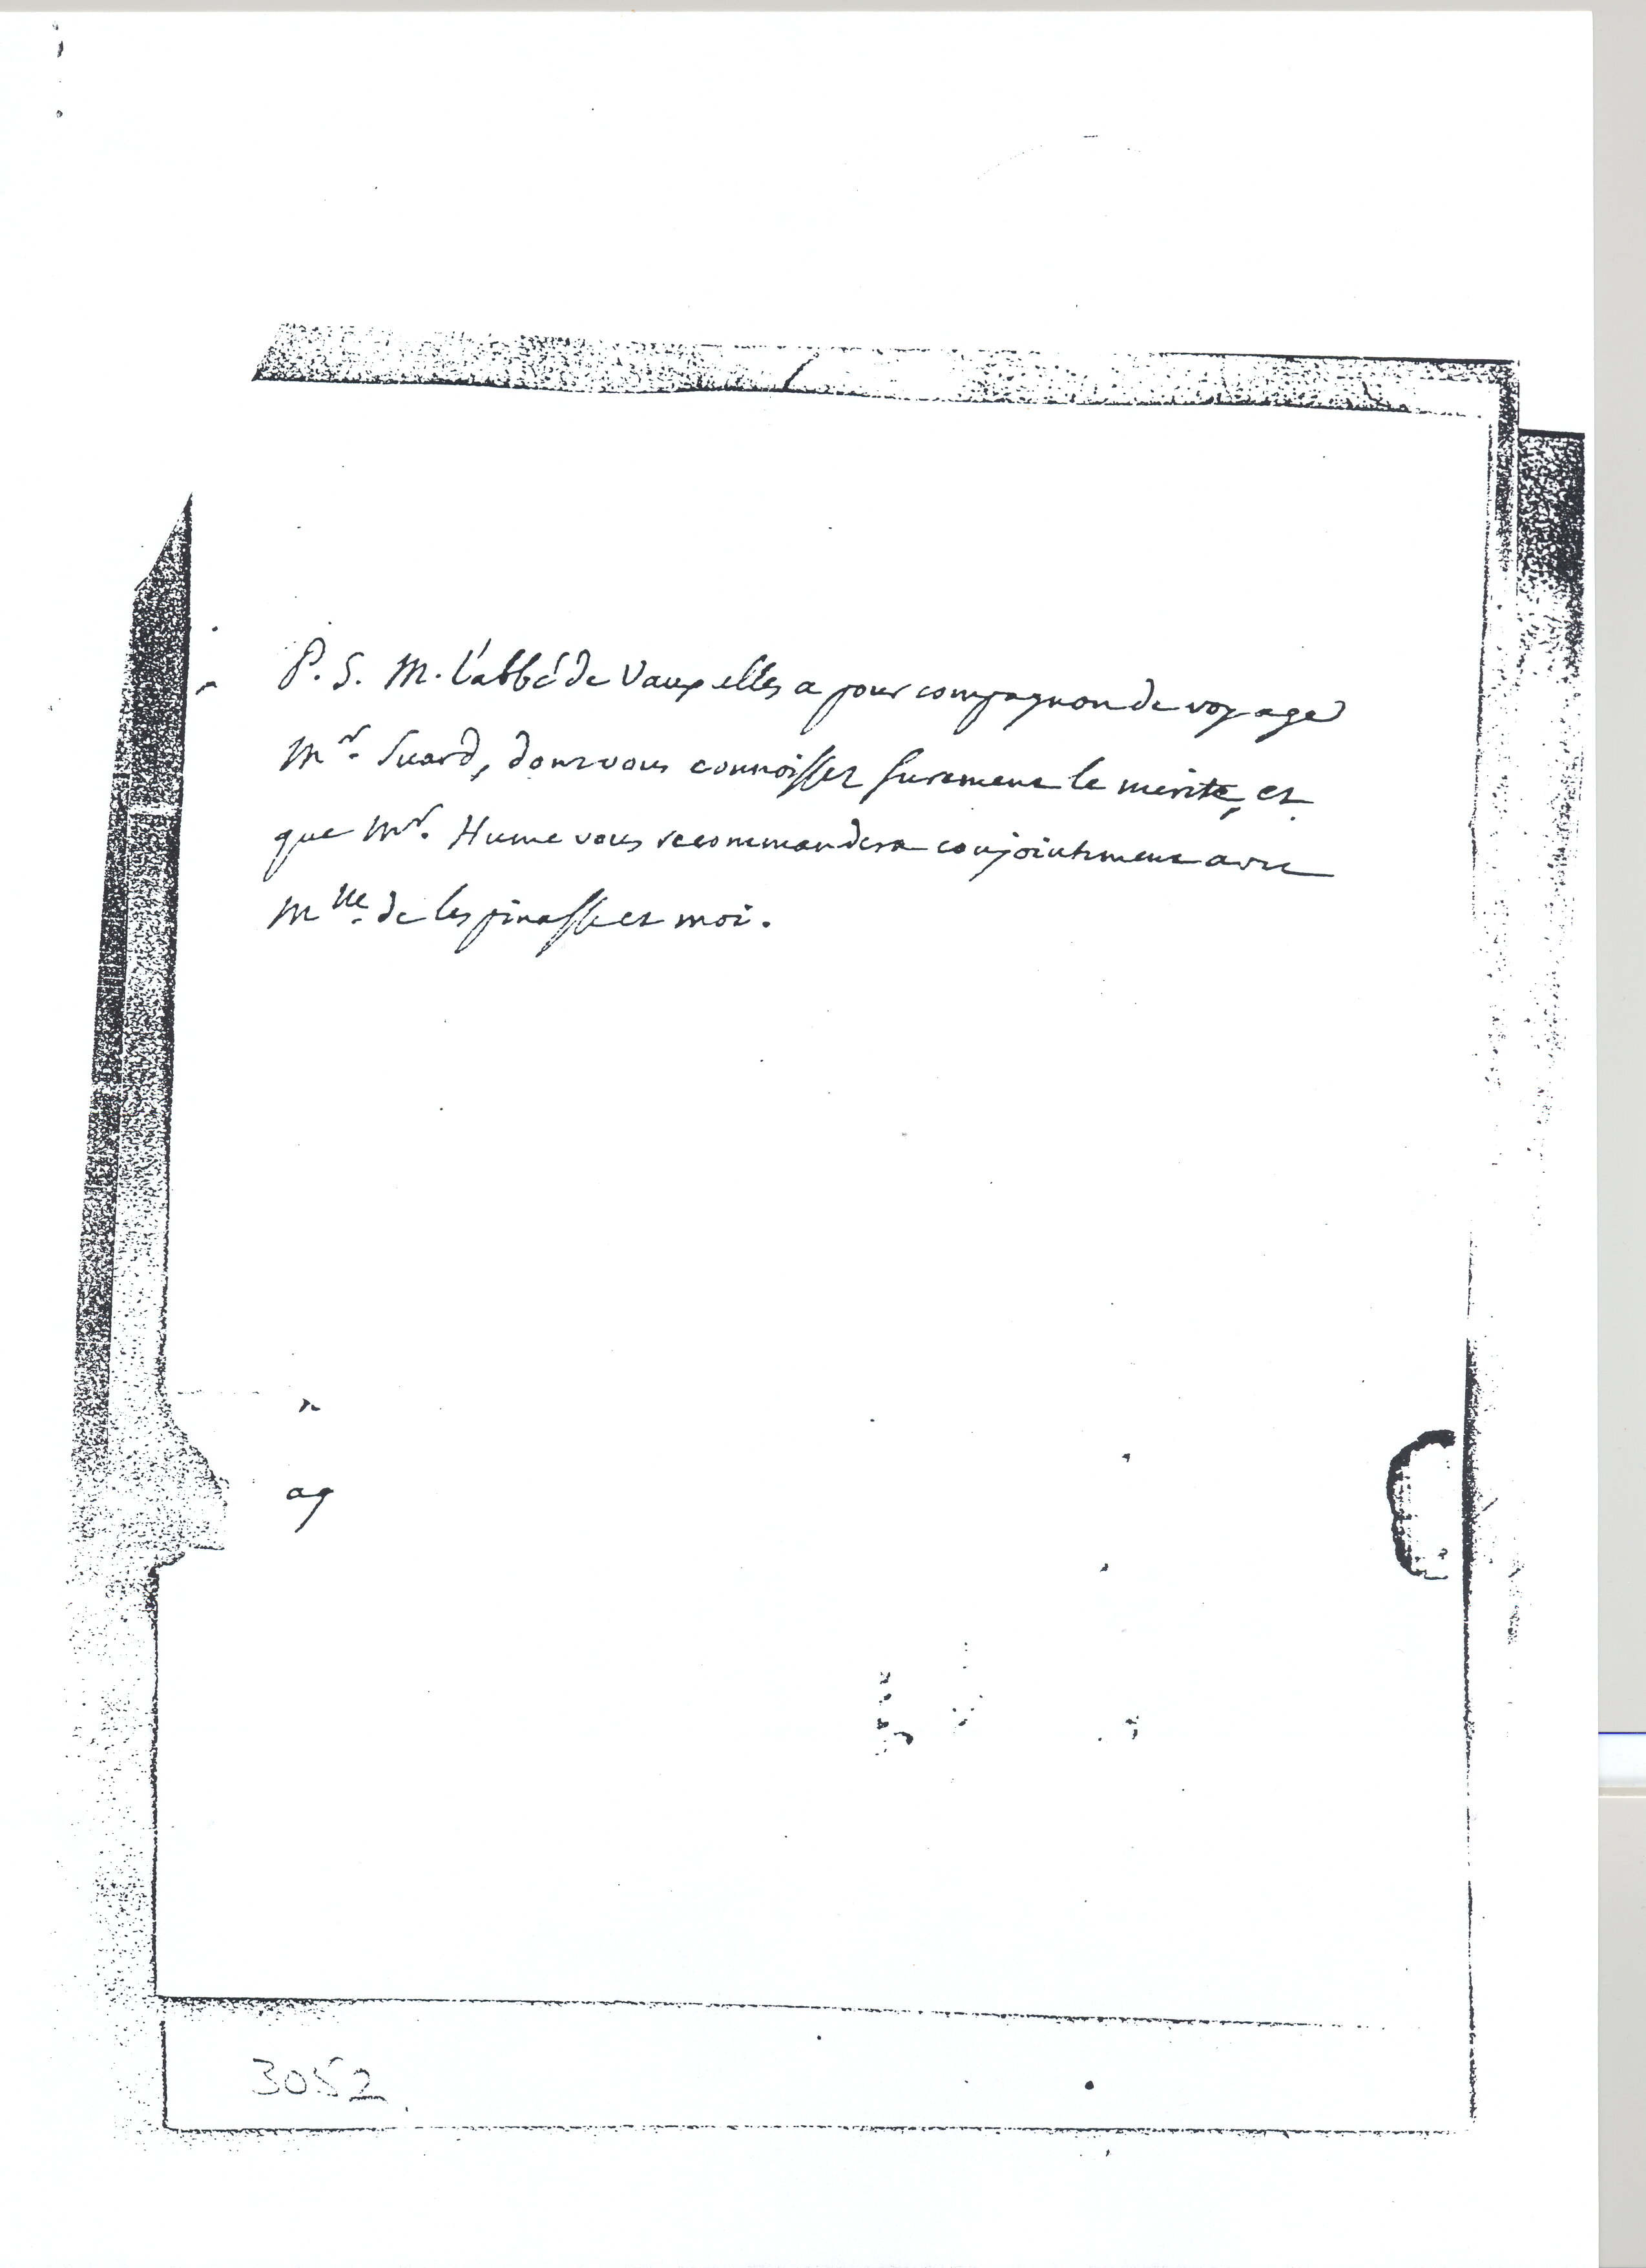 P. S. M. l'abbé de Vauxelles a pour compagnon de voyage
Mr. Suard, dont vous connoissez surement le merite, et
que Mr. Hume vous recommandera conjointement avec
Mlle. de lespinasse et moi.
ag
3052